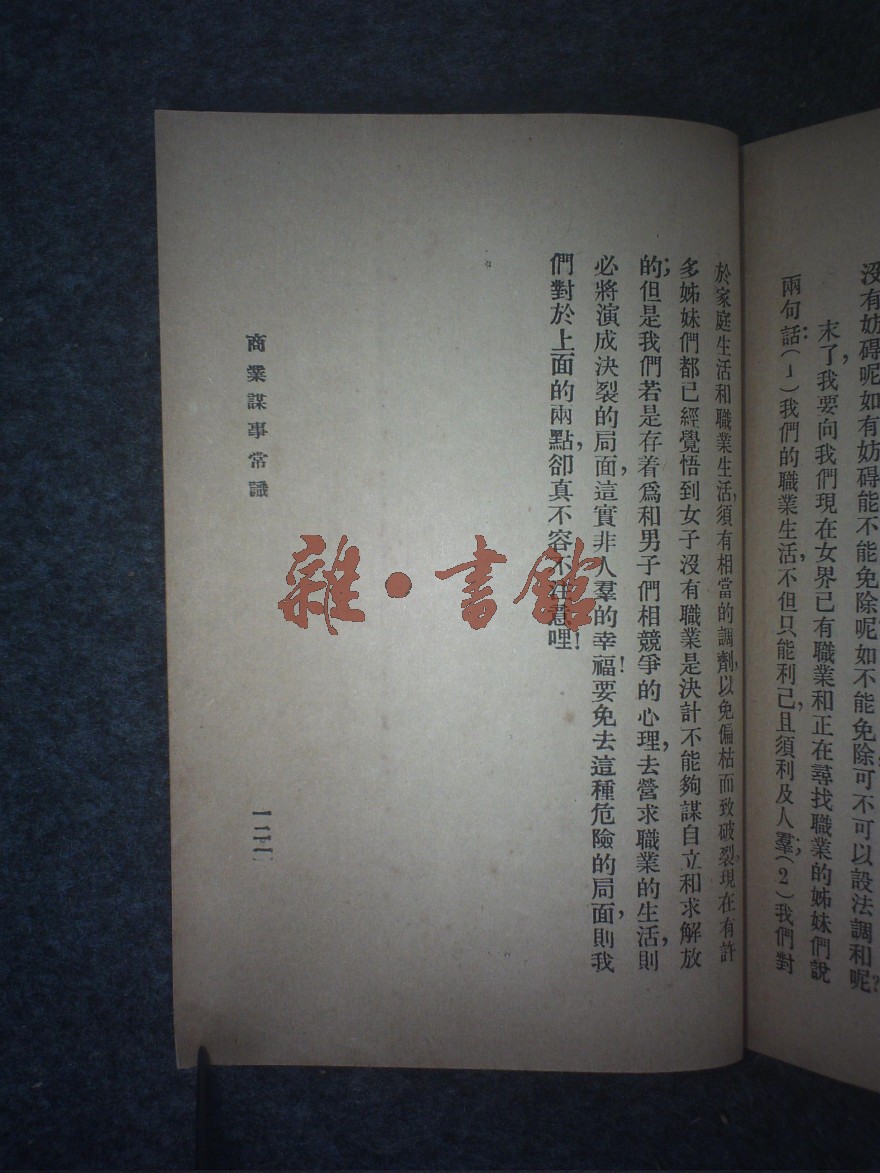 沒有妨碍呢如有妨碍能不能免除呢如不能免除可不可以設法調和呢?
末了,我要向我們現在女界已有職業和正在尋找職業的姊妹們說
兩句話:(1)我們的職業生活,不但只能利己,且須利及人羣;(2)我們對
於家庭生活和職業生活,須有相當的調劑,以免偏枯而致破裂,現在有許
多姊妹們都已經覺悟到女子沒有職業是決計不能夠謀自立和求解放
的;但是我們若是存着爲和男子們相競爭的心理,去營求職業的生活,則
必將演成決裂的局面,這實非人羣的幸福!要免去這種危險的局面,則我
們對於上面的兩點,卻真不容不注意哩!
商業謀事常識
雜·書館